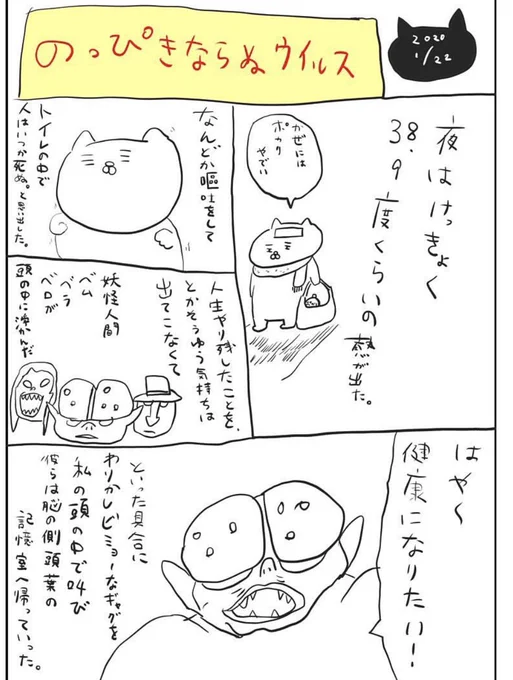 のっぴきならぬウイルス
2020
1/22
夜はけっきょく
38.9度くらいの熱が出た。
かぜには
ポカリ
やでい
なんどか嘔吐をして
トイレの中で
人はいつか死ぬ。と思い出した。
人生やり残したことを、
とかそうゆう気持ちは
出てこなくて、
妖怪人間
ベム
ベラ
ベロが
頭の中に浮かんだ
はや〜
健康になりたい!
といった具合に
わりかしビミョーなギャグを
私の頭の中で叫び
彼らは脳の側頭葉の
記憶室へ帰っていった。